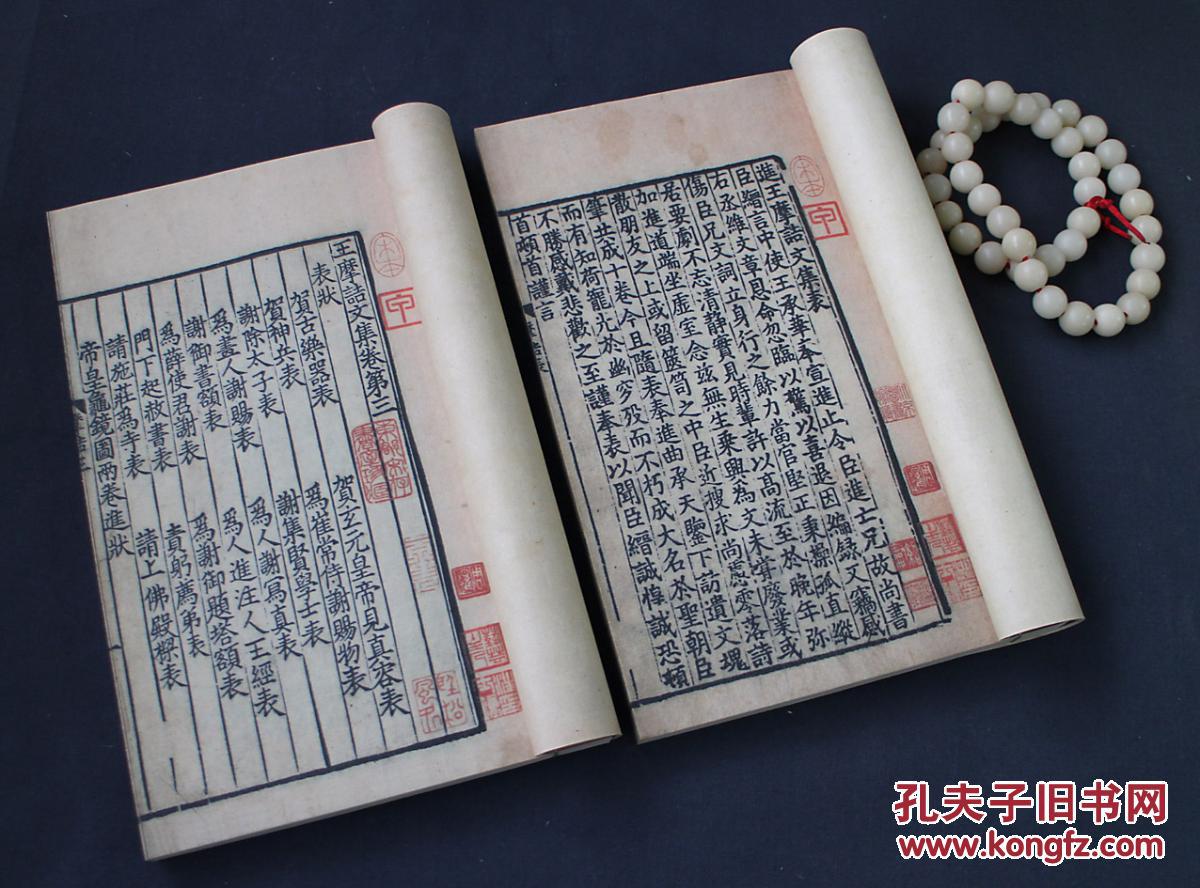 進王摩詰文集表
臣縉言中使王承華奉宣進止令臣進亡兄故尚書
右丞維文章恩命忽臨以驚以喜退因編錄又竊感
傷臣兄文詞立身行之餘力當官堅正秉操孤直縱
居要劇不忘清靜實見時輩許以高流至於晚年彌
加進道端坐虛室念兹無生乘興為文未嘗廢業或
散朋友之上或留篋笥之中臣近搜求尚慮零落詩
筆共成十卷今且隨表奉進曲承天鑒下訪遺文魂
而有知荷寵光於幽穸歿而不朽成大名於聖朝臣
不勝感戴悲歡之至謹奉表以聞臣縉誠惶誠恐頓
首頓首謹言
宋本
甲
王摩詰文集卷第三
表狀
賀古樂器表 賀玄元皇帝見真容表
賀神兵表 為崔常侍謝賜物表
謝除太子表 謝集賢學士表
為畫人謝賜表 為人謝寫真表
謝御書額表 為人進注人王經表
為薛使君謝表 為謝御題塔額表
門下起赦書表 責躬薦弟表
請施莊為寺表 請上佛殿樑表
帝皇龜鏡圖兩卷進狀
宋本
甲
孔夫子旧书网
www.kongfz.com